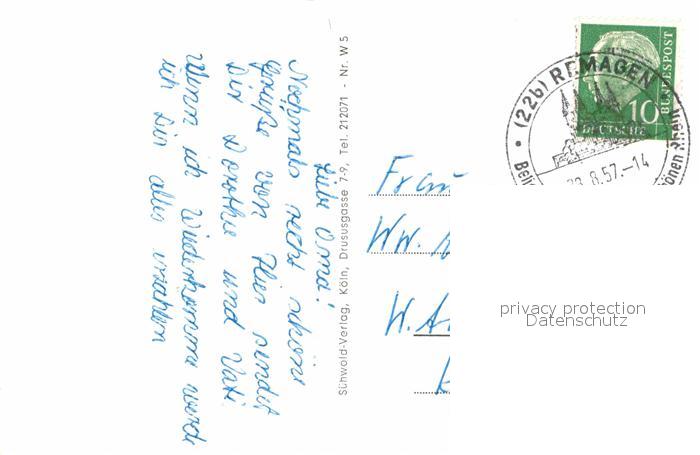 Liebe Oma!
Nochmals recht schöne
Grüße von hier sendet
Dir Dorothe und Vati
Wenn ich Wiederkomme werde
ich Dir alles erzählen
Sühwold-Verlag, Köln, Drususgasse 7-9, Tel. 212071 - Nr. W 5
Frau
Ww.
W.
(22b) REMAGEN
8.57.-14
Beli
önen Rhein
10
DEUTSCHE
BUNDESPOST
privacy protection
Datenschutz